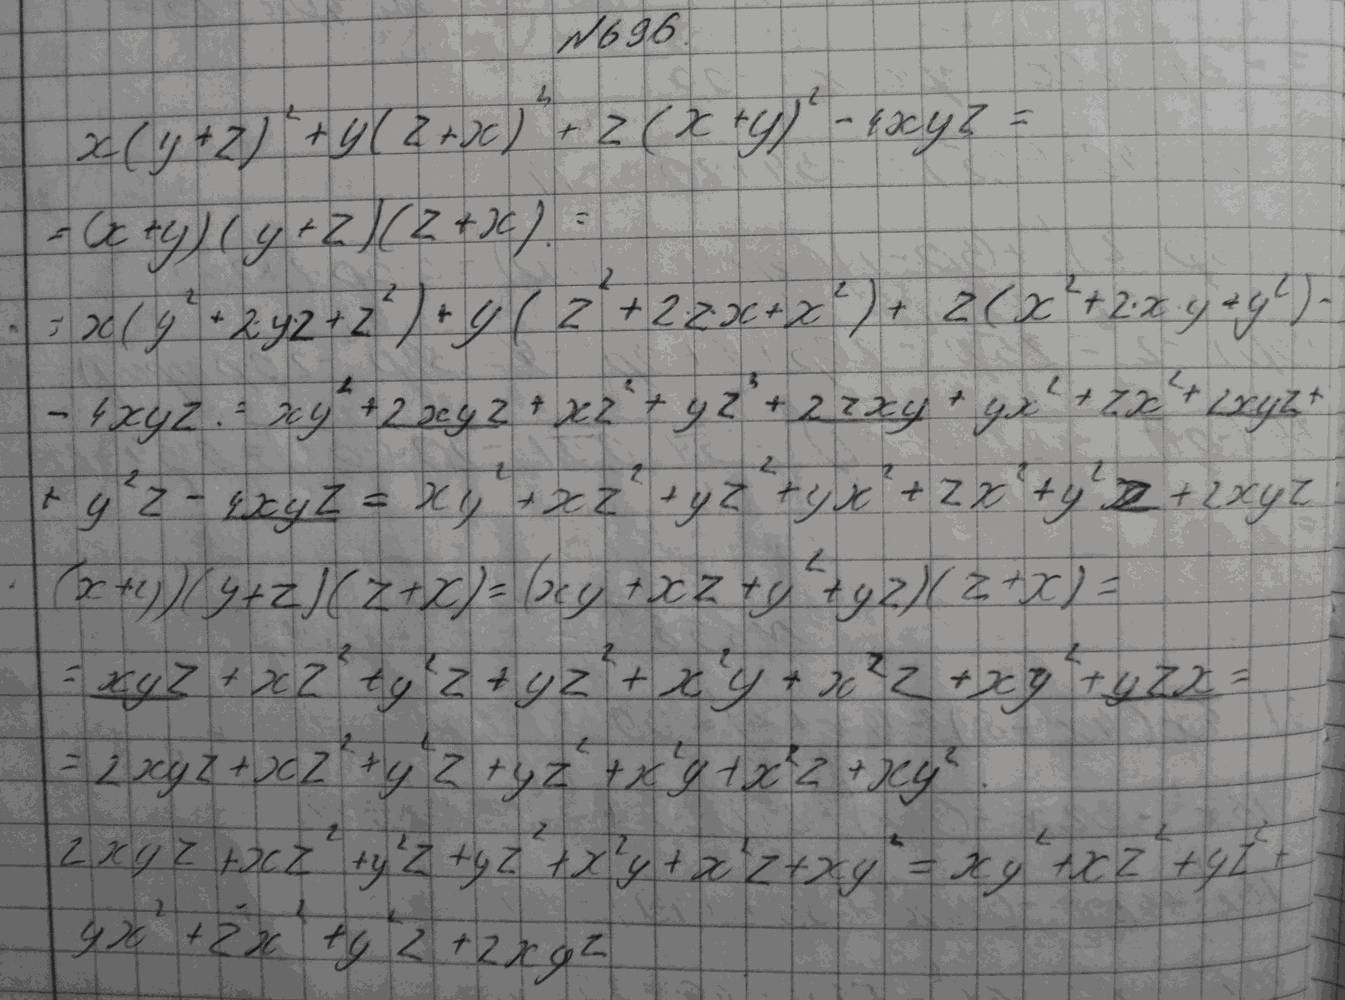 №696.
x(y+z)²+y(z+x)²+z(x+y)²-4xyz=
=(x+y)(y+z)(z+x).=
=x(y²+2yz+z²)+y(z²+2·zx+x²)+z(x²+2·x·y+y²)-
-4xyz.=xy²+2xyz+xz²+yz²+2zxy+yx²+zx²+2xyz+
+y²z-4xyz=xy²+xz²+yz²+yx²+zx²+y²z+2xyz
(x+y)(y+z)(z+x)=(xy+xz+y²+yz)(z+x)=
=xyz+xz²+y²z+yz²+x²y+x²z+xy²+yzx=
=2xyz+xz²+y²z+yz²+x²y+x²z+xy².
2xyz+xz²+y²z+yz²+x²y+x²z+xy²=xy²+xz²+yz²+
yx²+zx²+y²z+2xyz